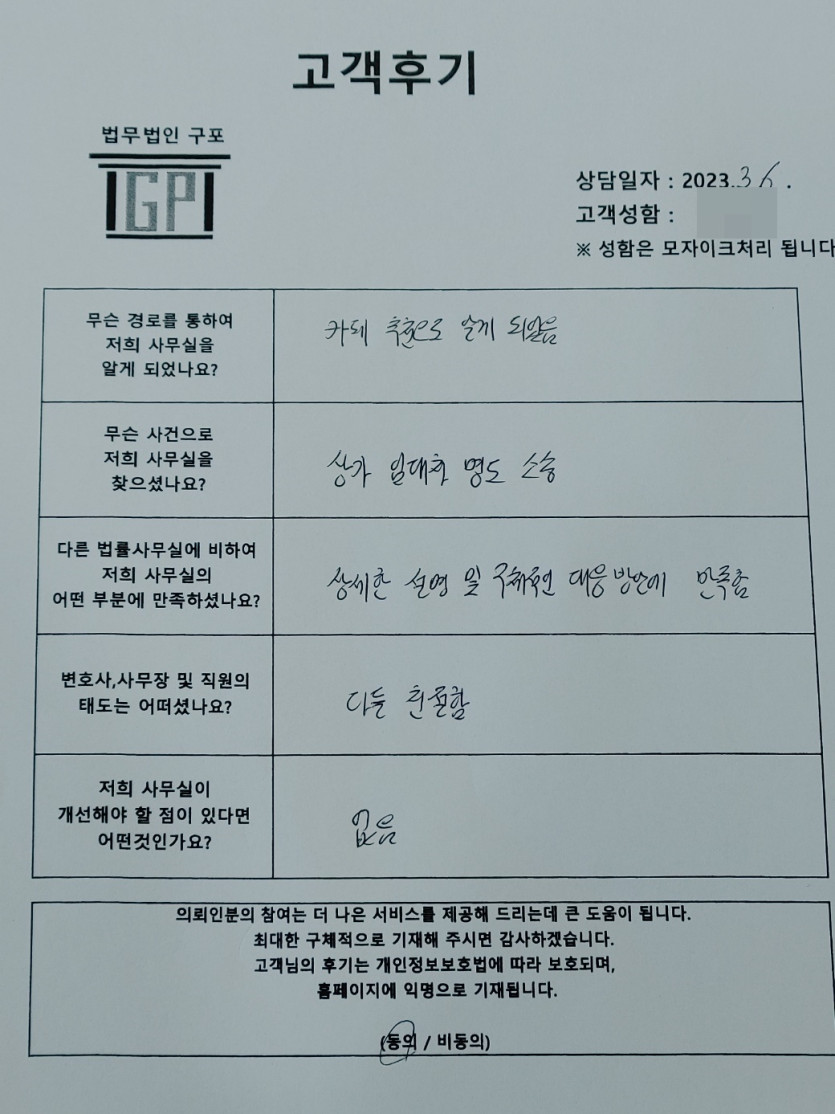 고객후기
법무법인 구포
GP
상담일자 : 2023. 3 6 .
고객성함 :
※ 성함은 모자이크처리 됩니다
무슨 경로를 통하여
저희 사무실을
알게 되었나요?
카페 추천으로 알게 되었음
무슨 사건으로
저희 사무실을
찾으셨나요?
상가 임대차 명도 소송
다른 법률사무실에 비하여
저희 사무실의
어떤 부분에 만족하셨나요?
상세한 설명 및 구체적인 대응 방안에 만족함
변호사,사무장 및 직원의
태도는 어떠셨나요?
다들 친절함
저희 사무실이
개선해야 할 점이 있다면
어떤것인가요?
없음
의뢰인분의 참여는 더 나은 서비스를 제공해 드리는데 큰 도움이 됩니다.
최대한 구체적으로 기재해 주시면 감사하겠습니다.
고객님의 후기는 개인정보보호법에 따라 보호되며,
홈페이지에 익명으로 기재됩니다.
(동의 / 비동의)